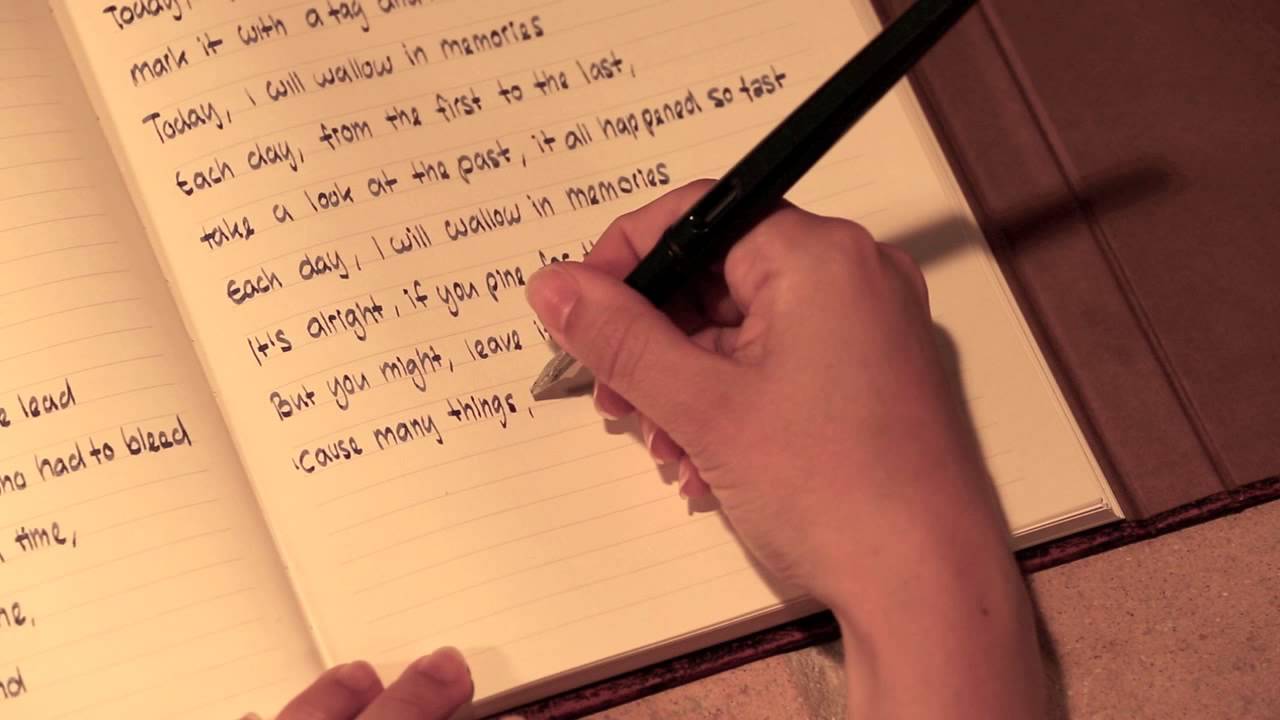 e lead
had to bleed
time,
Today,
mark it with a tag
Today, I will wallow in memories
Each day, from the first to the last,
take a look at the past, it all happened so fast
Each day, I will wallow in memories
It's alright, if you pine
But you might, leave
'cause many things,